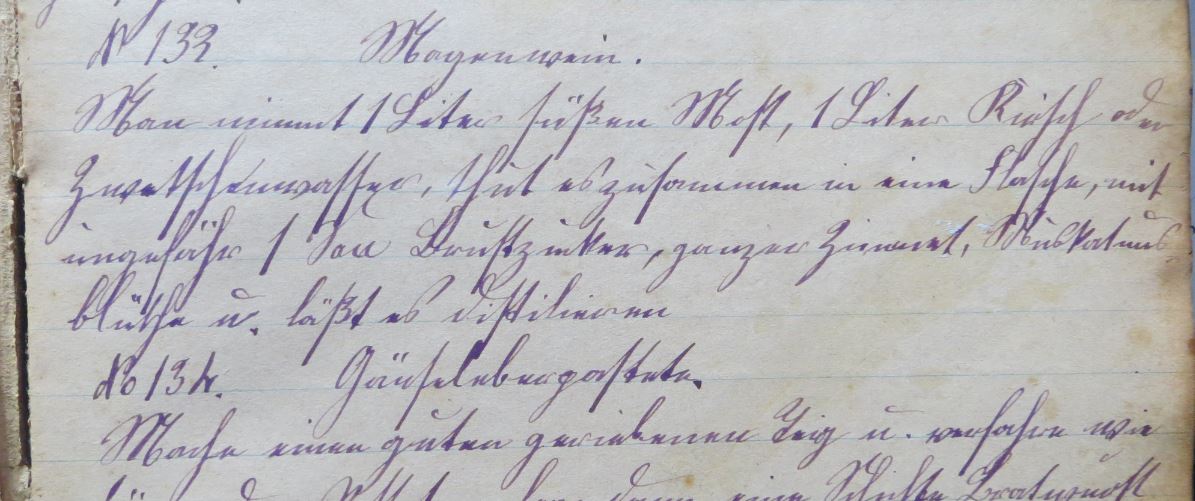 No 133. Magenwein.
Man nimmt 1 Liter süßen Most, 1 Liter Kirsch oder
Zwetschenwasser, thut es zusammen in eine Flasche, mit
ungefähr 1 Brustzucker, ganzer Zimmet, Muskatnus-
blüthe u. läßt es distilieren
No 134. Gänseleberpastete.
Mache einen guten geriebenen Teig u. verfahre wie
dann eine Schichte Bratwurst